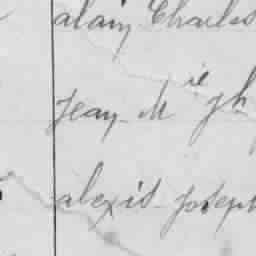 alain Charles
Jean-M ie Jh
alexis Joseph